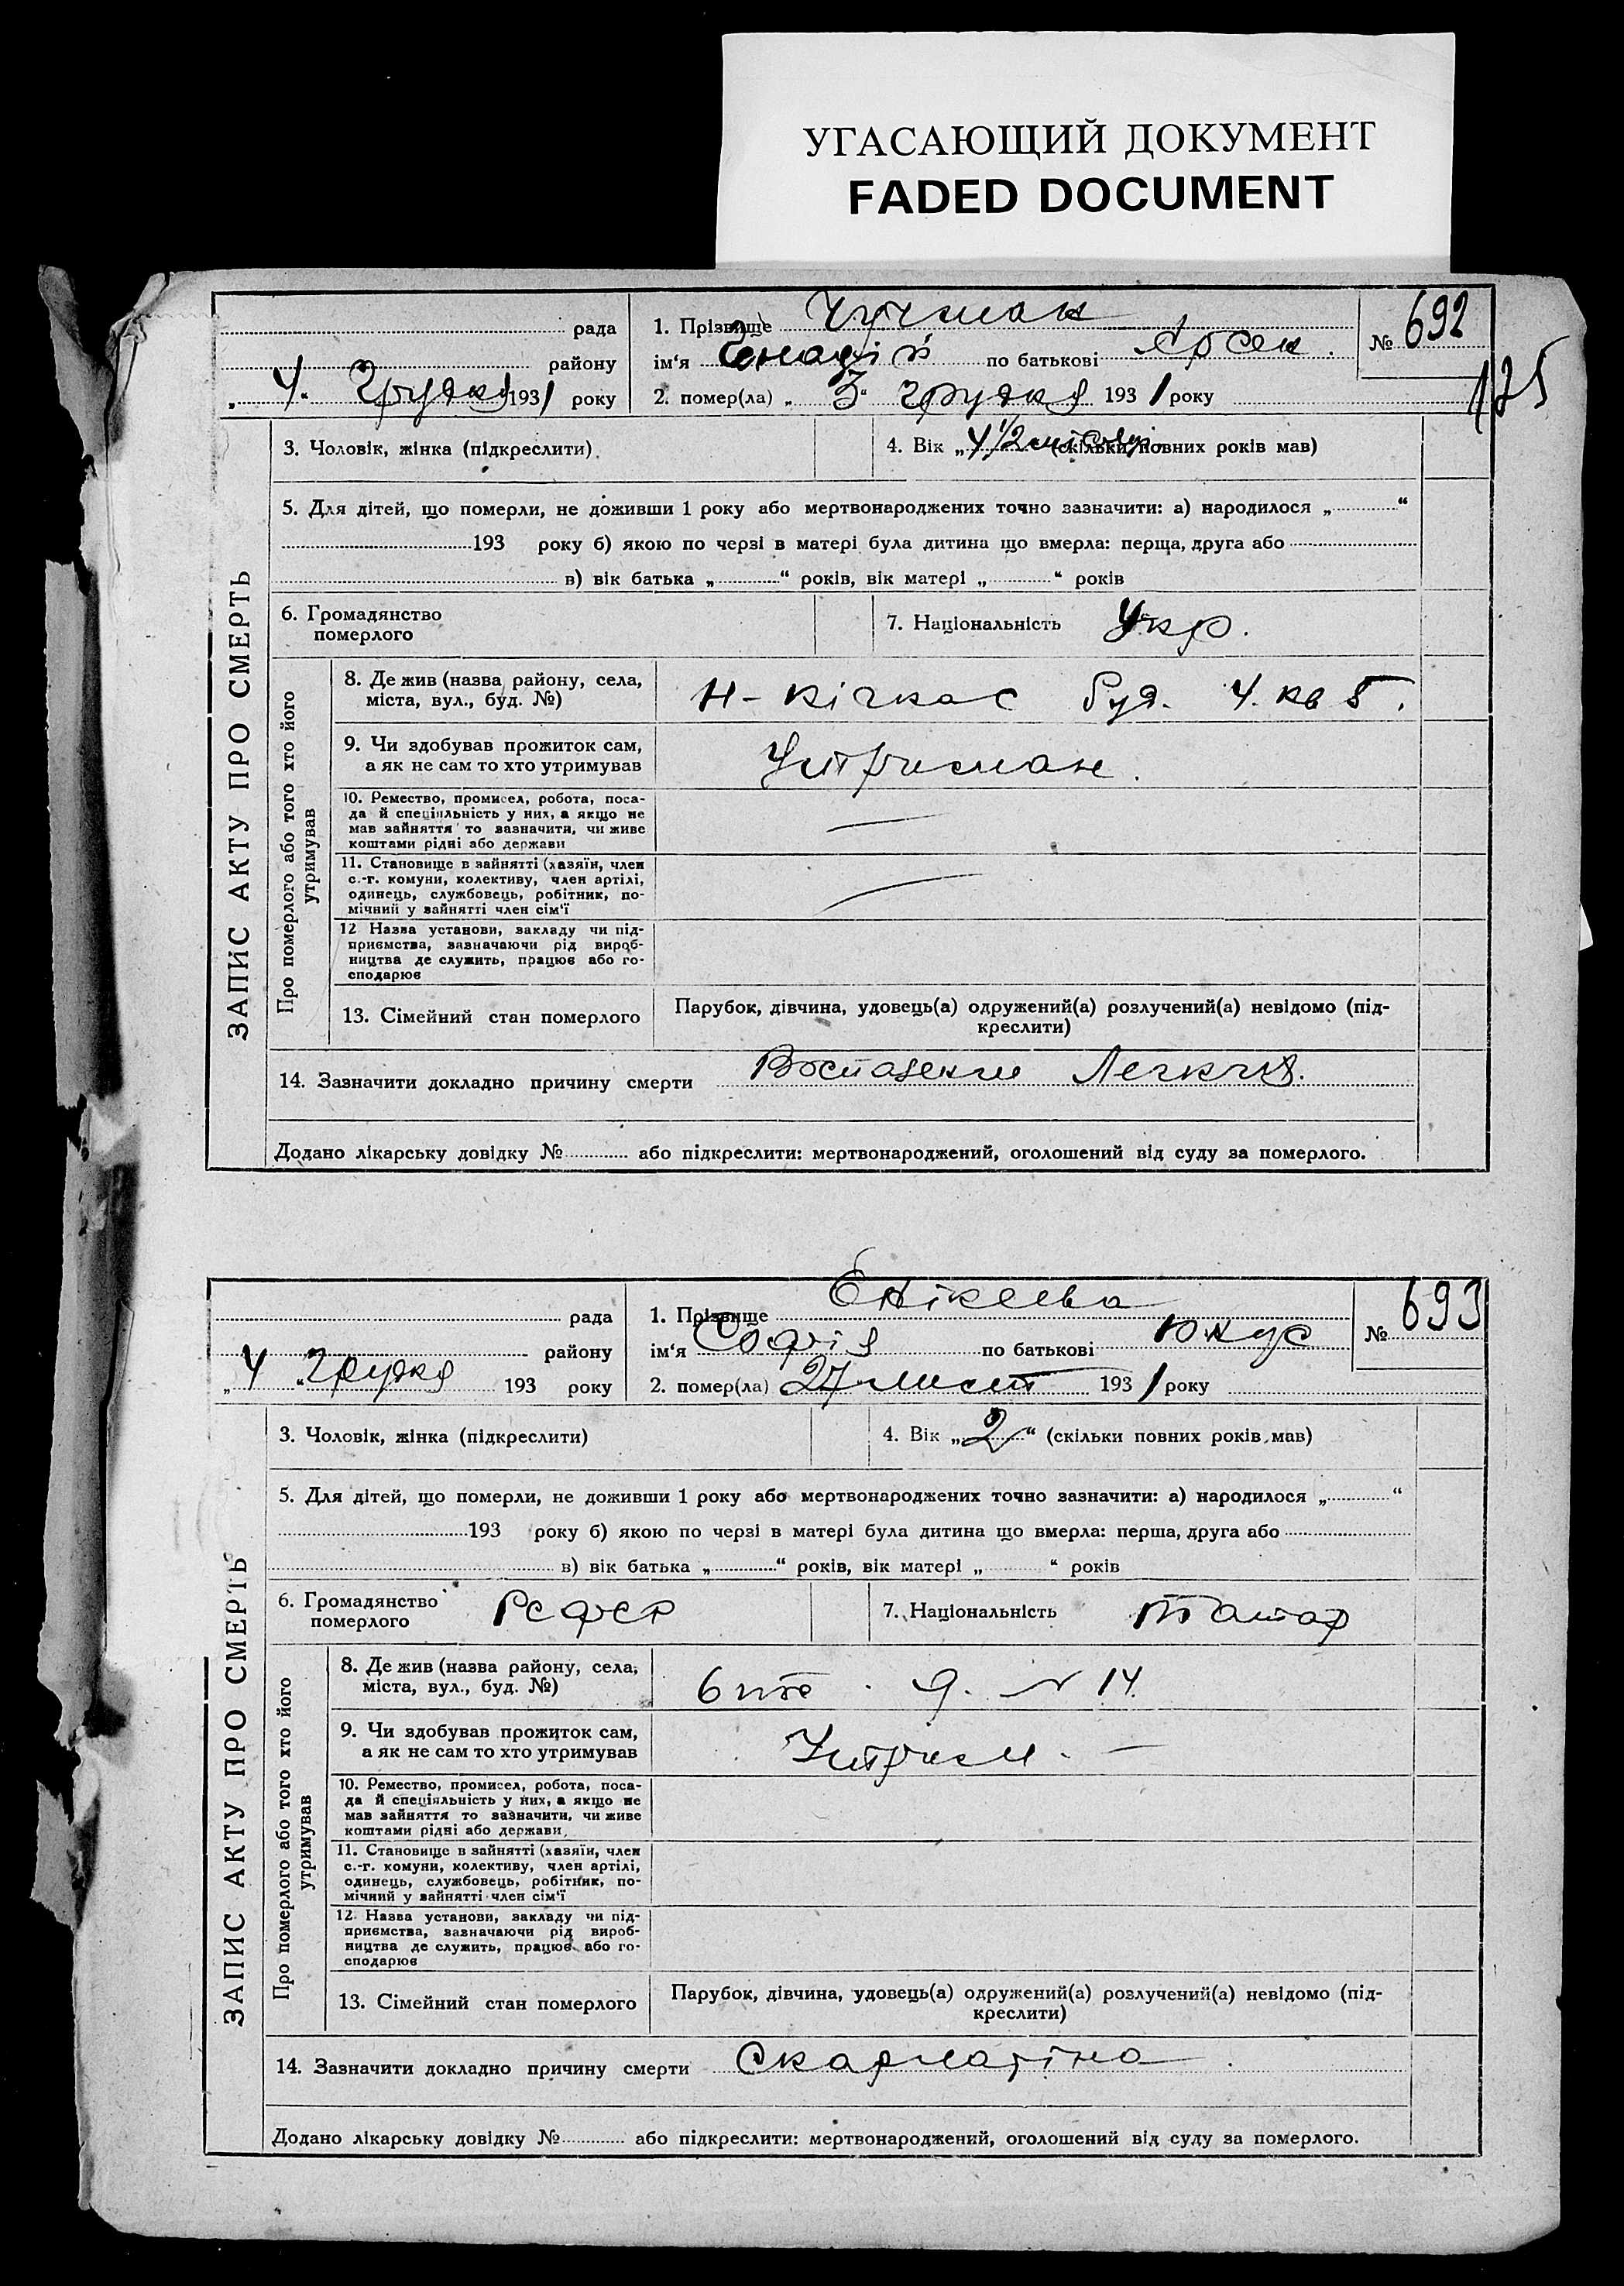 УГАСАЮЩИЙ ДОКУМЕНТ
FADED DOCUMENT
рада
району
„ 4 “ Грудня 1931 року
1. Прізвище Чучмак
ім‘я по батькові Арсен.
2. помер(ла) „ 3 “ грудня 1931 року
№ 692
175
ЗАПИС АКТУ ПРО СМЕРТЬ
3. Чоловік, жінка (підкреслити)
4. Вік „ 4 1/2 місяці (скільки повних років мав)
5. Для дітей, що померли, не доживши 1 року або мертвонароджених точно зазначити: а) народилося „ “
193 року б) якою по черзі в матері була дитина що вмерла: перща, друга або
в) вік батька „ “ років, вік матері „ “ років
6. Громадянство
померлого
7. Національність Укр.
Про померлого або того хто його
утримував
8. Де жив (назва району, села,
міста, вул., буд. №)
Н-Кічкас буд. 4. кв 5.
9. Чи здобував прожиток сам,
а як не сам то хто утримував
Утриман.
10. Ремество, промисел, робота, поса-
да й спеціяльність у них, а якщо не
мав зайняття то зазначити, чи живе
коштами рідні або держави
11. Становище в зайнятті (хазяїн, член
с.-г. комуни, колективу, член артілі,
одинець, службовець, робітник, по-
мічний у зайнятті член сім‘ї
12 Назва установи, закладу чи під-
приємства, зазначаючи рід вироб-
ництва де служить, працює або го-
сподарює
13. Сімейний стан померлого
Парубок, дівчина, удовець(а) одружений(а) розлучений(а) невідомо (під-
креслити)
14. Зазначити докладно причину смерти Легкчя.
Додано лікарську довідку № або підкреслити: мертвонароджений, оголошений від суду за померлого.
рада
району
„ 4 “ Грудня 193 року
1. Прізвище Енікеева
ім‘я Софія по батькові Юнус
2. помер(ла) 27 лист 1931 року
№ 693
ЗАПИС АКТУ ПРО СМЕРТЬ
3. Чоловік, жінка (підкреслити)
4. Вік „ 2 “ (скільки повних років мав)
5. Для дітей, що померли, не доживши 1 року або мертвонароджених точно зазначити: а) народилося „ “
193 року б) якою по черзі в матері була дитина що вмерла: перша, друга або
в) вік батька „ “ років, вік матері „ “ років
6. Громадянство
померлого
РСФСР
7. Національність Татар
Про померлого або того хто його
утримував
8. Де жив (назва району, села,
міста, вул., буд. №)
6 д. № 14.
9. Чи здобував прожиток сам,
а як не сам то хто утримував
Утрим. —
10. Ремество, промисел, робота, поса-
да й спеціяльність у них, а якщо не
мав зайняття то зазначити, чи живе
коштами рідні або держави
11. Становище в зайнятті (хазяїн, член
с.-г. комуни, колективу, член артілі,
одинець, службовець, робітник, по-
мічний у зайнятті член сім‘ї
12. Назва установи, закладу чи під-
приємства, зазначаючи рід вироб-
ництва де служить, працює або го-
сподарює
13. Сімейний стан померлого
Парубок, дівчина, удовець(а) одружений(а) розлучений(а) невідомо (під-
креслити)
14. Зазначити докладно причину смерти Скарлатіна
Додано лікарську довідку № або підкреслити: мертвонароджений, оголошений від суду за померлого.